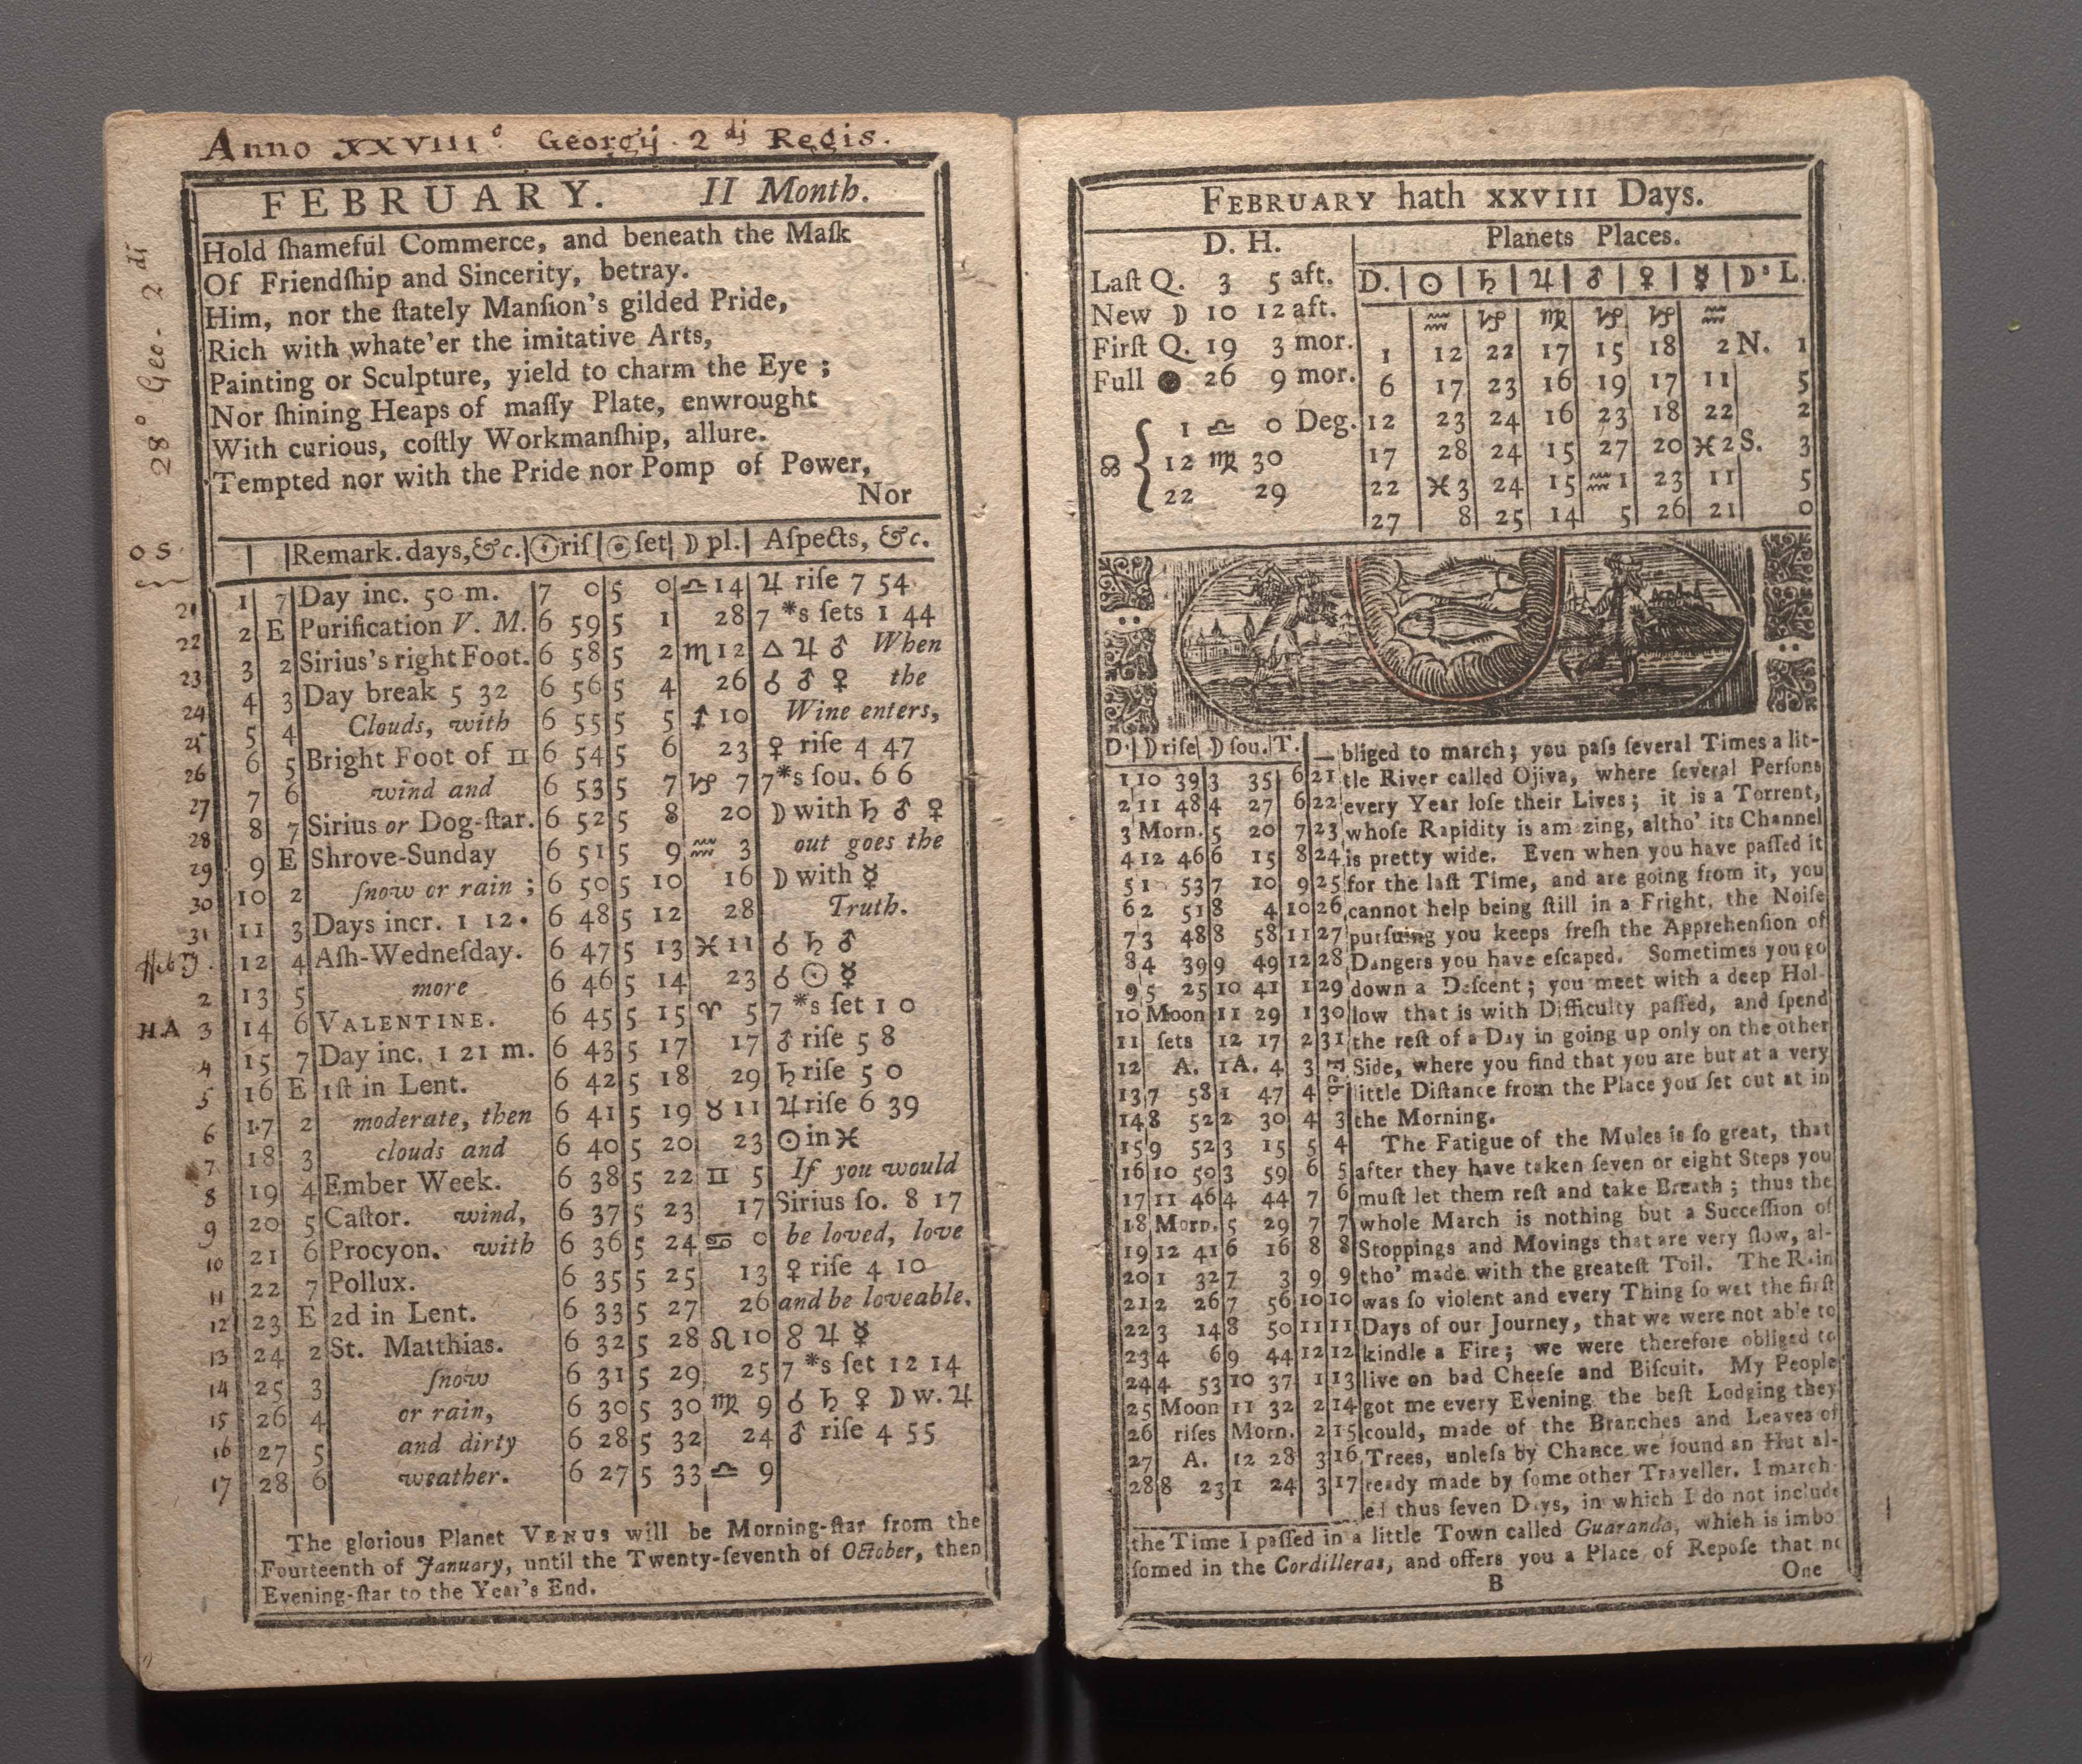 Anno XXVIII° Georgij 2 dj Regis.
28° Geo. 2 dj
FEBRUARY. II Month.
Hold ſhameful Commerce, and beneath the Maſk
Of Friendſhip and Sincerity, betray.
Him, nor the ſtately Manſion's gilded Pride,
Rich with whate'er the imitative Arts,
Painting or Sculpture, yield to charm the Eye ;
Nor ſhining Heaps of maſſy Plate, enwrought
With curious, coſtly Workmanſhip, allure.
Tempted nor with the Pride nor Pomp of Power,
Nor
O S. | | Remark. days, &c. | ☉ riſ | ☉ ſet | ☽ pl. | Aſpects, &c.
21 1 7 Day inc. 50 m. 7 0 5 0 ♎ 14 ♃ riſe 7 54
22 2 E Purification V. M. 6 59 5 1 28 7 *s ſets 1 44
23 3 2 Sirius's right Foot. 6 58 5 2 ♏ 12 △ ♃ ♂ When
24 4 3 Day break 5 32 6 56 5 4 26 ☌ ♂ ♀ the
25 5 4 Clouds, with 6 55 5 5 ♐ 10 Wine enters,
26 6 5 Bright Foot of ♊ 6 54 5 6 23 ♀ riſe 4 47
27 7 6 wind and 6 53 5 7 ♑ 7 7 *s ſou. 6 6
28 8 7 Sirius or Dog-ſtar. 6 52 5 8 20 ☽ with ♄ ♂ ♀
29 9 E Shrove-Sunday 6 51 5 9 ♒ 3 out goes the
30 10 2 ſnow or rain ; 6 50 5 10 16 ☽ with ☿
31 11 3 Days incr. 1 12. 6 48 5 12 28 Truth.
Febry. 12 4 Aſh-Wedneſday. 6 47 5 13 ♓ 11 ☌ ♄ ♂
2 13 5 more 6 46 5 14 23 ☌ ☉ ☿
H.A 3 14 6 VALENTINE. 6 45 5 15 ♈ 5 7 *s ſet 1 0
4 15 7 Day inc. 1 21 m. 6 43 5 17 17 ♂ riſe 5 8
5 16 E 1ſt in Lent. 6 42 5 18 29 ♄ riſe 5 0
6 17 2 moderate, then 6 41 5 19 ♉ 11 ♃ riſe 6 39
7 18 3 clouds and 6 40 5 20 23 ☉ in ♓
8 19 4 Ember Week. 6 38 5 22 ♊ 5 If you would
9 20 5 Caſtor. wind, 6 37 5 23 17 Sirius ſo. 8 17
10 21 6 Procyon. with 6 36 5 24 ♋ 0 be loved, love
11 22 7 Pollux. 6 35 5 25 13 ♀ riſe 4 10
12 23 E 2d in Lent. 6 33 5 27 26 and be loveable.
13 24 2 St. Matthias. 6 32 5 28 ♌ 10 ☍ ♃ ☿
14 25 3 ſnow 6 31 5 29 25 7 *s ſet 12 14
15 26 4 or rain, 6 30 5 30 ♍ 9 ☌ ♄ ♀ ☽ w. ♃
16 27 5 and dirty 6 28 5 32 24 ♂ riſe 4 55
17 28 6 weather. 6 27 5 33 ♎ 9
The glorious Planet VENUS will be Morning-ſtar from the
Fourteenth of January, until the Twenty-ſeventh of October, then
Evening-ſtar to the Year's End.
FEBRUARY hath XXVIII Days.
D. H.
Laſt Q. 3 5 aft.
New ☽ 10 12 aft.
Firſt Q. 19 3 mor.
Full ● 26 9 mor.
1 ♎ 0 Deg.
☊ { 12 ♍ 30
22 29
Planets Places.
D. | ☉ | ♄ | ♃ | ♂ | ♀ | ☿ | ☽'s L.
♒ ♑ ♍ ♑ ♑ ♒
1 12 22 17 15 18 2 N. 1
6 17 23 16 19 17 11 5
12 23 24 16 23 18 22 2
17 28 24 15 27 20 ♓ 2 S. 3
22 ♓ 3 24 15 ♒ 1 23 11 5
27 8 25 14 5 26 21 0
D. | ☽ riſe | ☽ ſou. | T. | —bliged to march; you paſs ſeveral Times a lit-
1 10 39 3 35 6 21 tle River called Ojiva, where ſeveral Perſons
2 11 48 4 27 6 22 every Year loſe their Lives; it is a Torrent,
3 Morn. 5 20 7 23 whoſe Rapidity is am zing, altho' its Channel
4 12 46 6 15 8 24 is pretty wide. Even when you have paſſed it
5 1 53 7 10 9 25 for the laſt Time, and are going from it, you
6 2 51 8 4 10 26 cannot help being ſtill in a Fright, the Noiſe
7 3 48 8 58 11 27 purſuing you keeps freſh the Apprehenſion of
8 4 39 9 49 12 28 Dangers you have eſcaped. Sometimes you go
9 5 25 10 41 1 29 down a Deſcent; you meet with a deep Hol-
10 Moon 11 29 1 30 low that is with Difficulty paſſed, and ſpend
11 ſets 12 17 2 31 the reſt of a Day in going up only on the other
12 A. 1A. 4 3 Feb. Side, where you find that you are but at a very
13 7 58 1 47 4 little Diſtance from the Place you ſet out at in
14 8 52 2 30 4 3 the Morning.
15 9 52 3 15 5 4 The Fatigue of the Mules is ſo great, that
16 10 50 3 59 6 5 after they have taken ſeven or eight Steps you
17 11 46 4 44 7 6 muſt let them reſt and take Breath; thus the
18 Morn. 5 29 7 7 whole March is nothing but a Succeſſion of
19 12 41 6 16 8 8 Stoppings and Movings that are very ſlow, al-
20 1 32 7 3 9 9 tho' made with the greateſt Toil. The R in
21 2 26 7 56 10 10 was ſo violent and every Thing ſo wet the firſt
22 3 14 8 50 11 11 Days of our Journey, that we were not able to
23 4 6 9 44 12 12 kindle a Fire; we were therefore obliged to
24 4 53 10 37 1 13 live on bad Cheeſe and Biſcuit. My People
25 Moon 11 32 2 14 got me every Evening the beſt Lodging they
26 riſes Morn. 2 15 could, made of the Branches and Leaves of
27 A. 12 28 3 16 Trees, unleſs by Chance we found an Hut al-
28 8 23 1 24 3 17 ready made by ſome other Traveller. I march-
ed thus ſeven Days, in which I do not include
the Time I paſſed in a little Town called Guaranda, which is imbo
ſomed in the Cordilleras, and offers you a Place of Repoſe that
B One